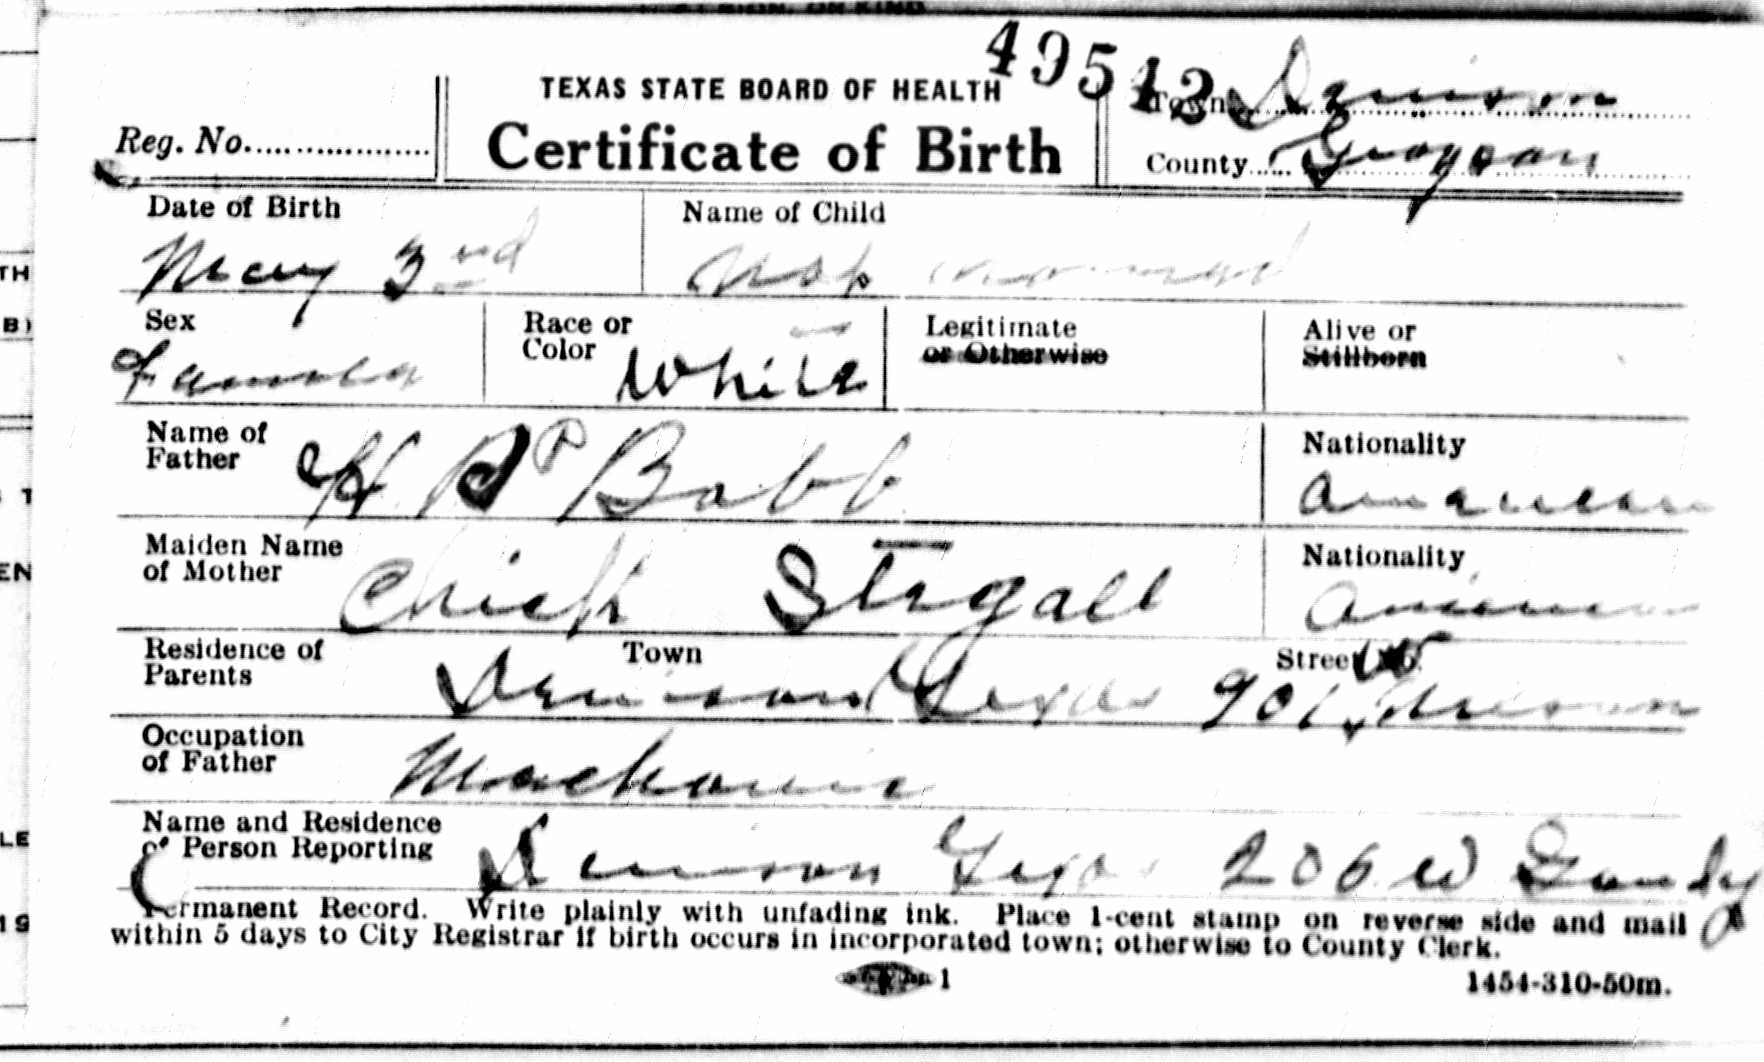 49512
TEXAS STATE BOARD OF HEALTH
Town Denison
Reg. No.
Certificate of Birth
County Grayson
Date of Birth
Name of Child
May 3rd
Not named
Sex
Race or
Color
Legitimate
or Otherwise
Alive or
Stillborn
White
Name of
Father
H Babb
Nationality
American
Maiden Name
of Mother
Stegall
Nationality
American
Residence of
Parents
Town
Street
Denison Texas 901
Occupation
of Father
Name and Residence
of Person Reporting
Denison Texas 206 W Gandy
Permanent Record. Write plainly with unfading ink. Place 1-cent stamp on reverse side and mail
within 5 days to City Registrar if birth occurs in incorporated town; otherwise to County Clerk.
1
1454-310-50m.